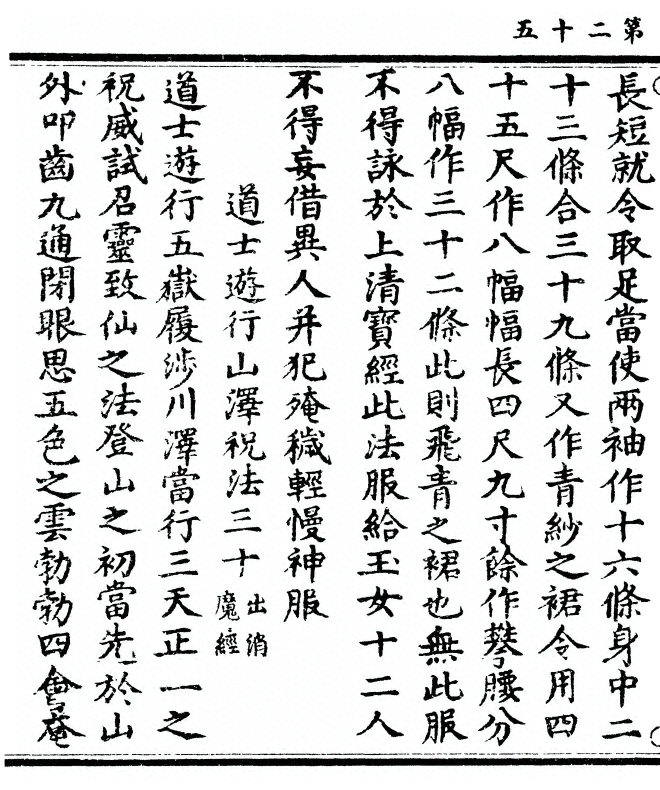 第二十五
長短就令取足當使兩袖作十六條身中二
十三條合三十九條又作青紗之裙令用四
十五尺作八幅幅長四尺九寸餘作攀腰分
八幅作三十二條此則飛青之裙也無此服
不得詠於上清寶經此法服給玉女十二人
不得妄借異人并犯殗穢輕慢神服
道士遊行山澤祝法三十出消魔經
道士遊行五嶽履涉川澤當行三天正一之
祝威試召靈致仙之法登山之初當先於山
外叩齒九通閉眼思五色之雲勃勃四會奄